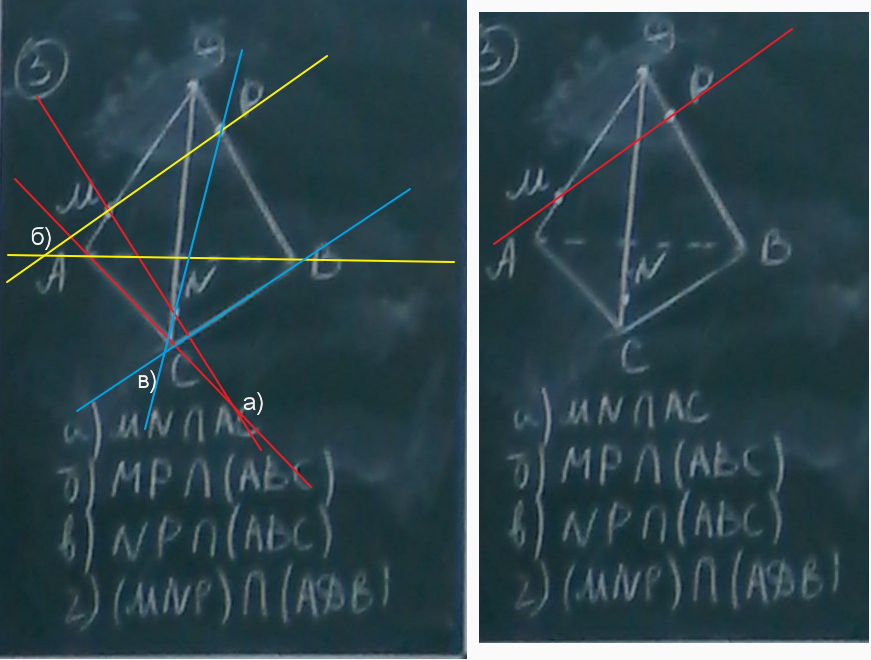 3
P
M
б)
A
N
B
в)
C
а)
а) MN∩AC
б) MP∩(ABC)
в) NP∩(ABC)
г) (MNP)∩(ADB)
3
P
M
A
N
B
C
а) MN∩AC
б) MP∩(ABC)
в) NP∩(ABC)
г) (MNP)∩(ADB)